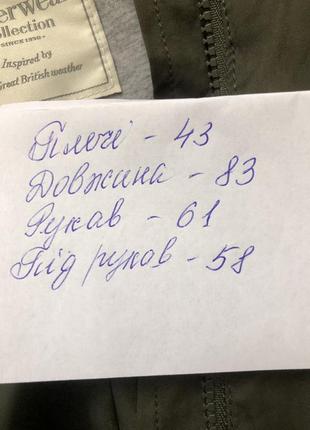 Collection
SINCE 1950
Inspired by
Great British weather
Плечі - 43
Довжина - 83
Рукав - 61
Під руков - 58